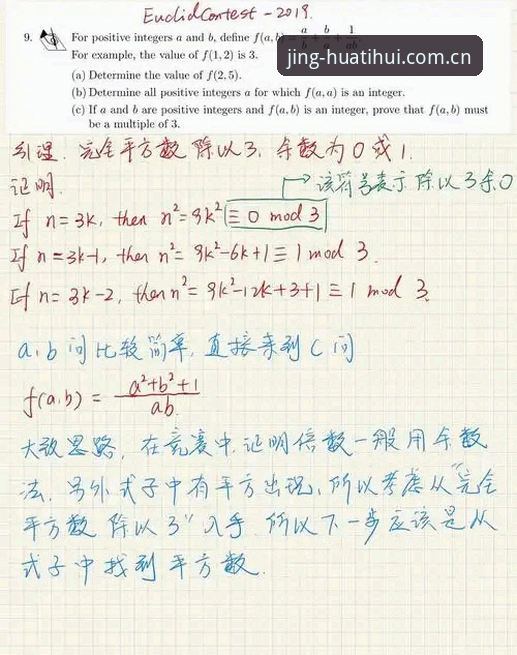 Euclid Contest - 2019.
9. For positive integers a and b, define f(a,b) = a/b + b/a + 1/ab.
jing-huatihui.com.cn
For example, the value of f(1, 2) is 3.
(a) Determine the value of f(2, 5).
(b) Determine all positive integers a for which f(a, a) is an integer.
(c) If a and b are positive integers and f(a, b) is an integer, prove that f(a, b) must
be a multiple of 3.
引理. 完全平方数 除以3, 余数为 0 或 1.
证明.
该符号表示 除以3余0
If n=3k, then n²=9k² ≡ 0 mod 3
If n=3k-1, then n²= 9k²-6k+1 ≡ 1 mod 3.
If n= 3k-2, then n²= 9k²-12k+3+1 ≡ 1 mod 3.
a.b 问比较简单, 直接来到 C 问
f(a,b) = a²+b²+1 / ab.
大致思路, 在竞赛中, 证明倍数一般用余数
法, 另外式子中有平方出现, 所以考虑从"完全
平方数 除以3"入手. 所以下一步应该是从
式子中找到平方数.